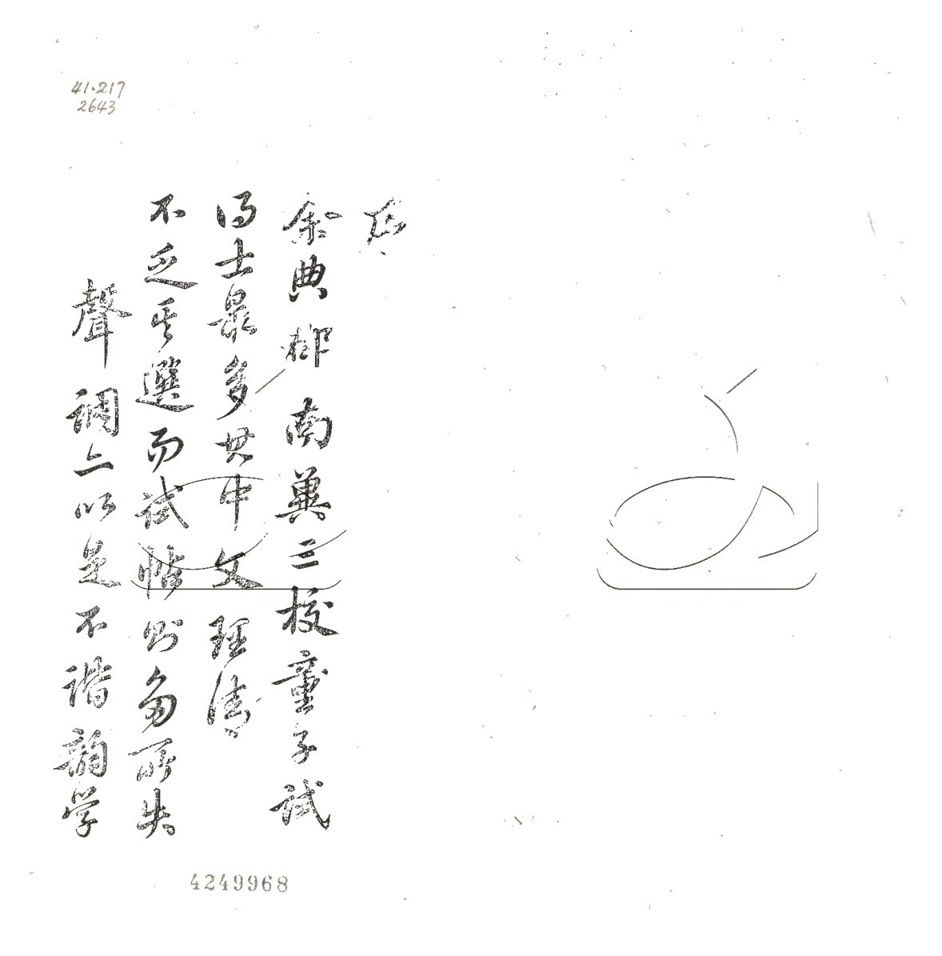 41.217
2643
序
余典郡南冀三校童子試
得士最多其中文理清
不乏其選而試帖則所失
聲調以是不諧韻学
4249968